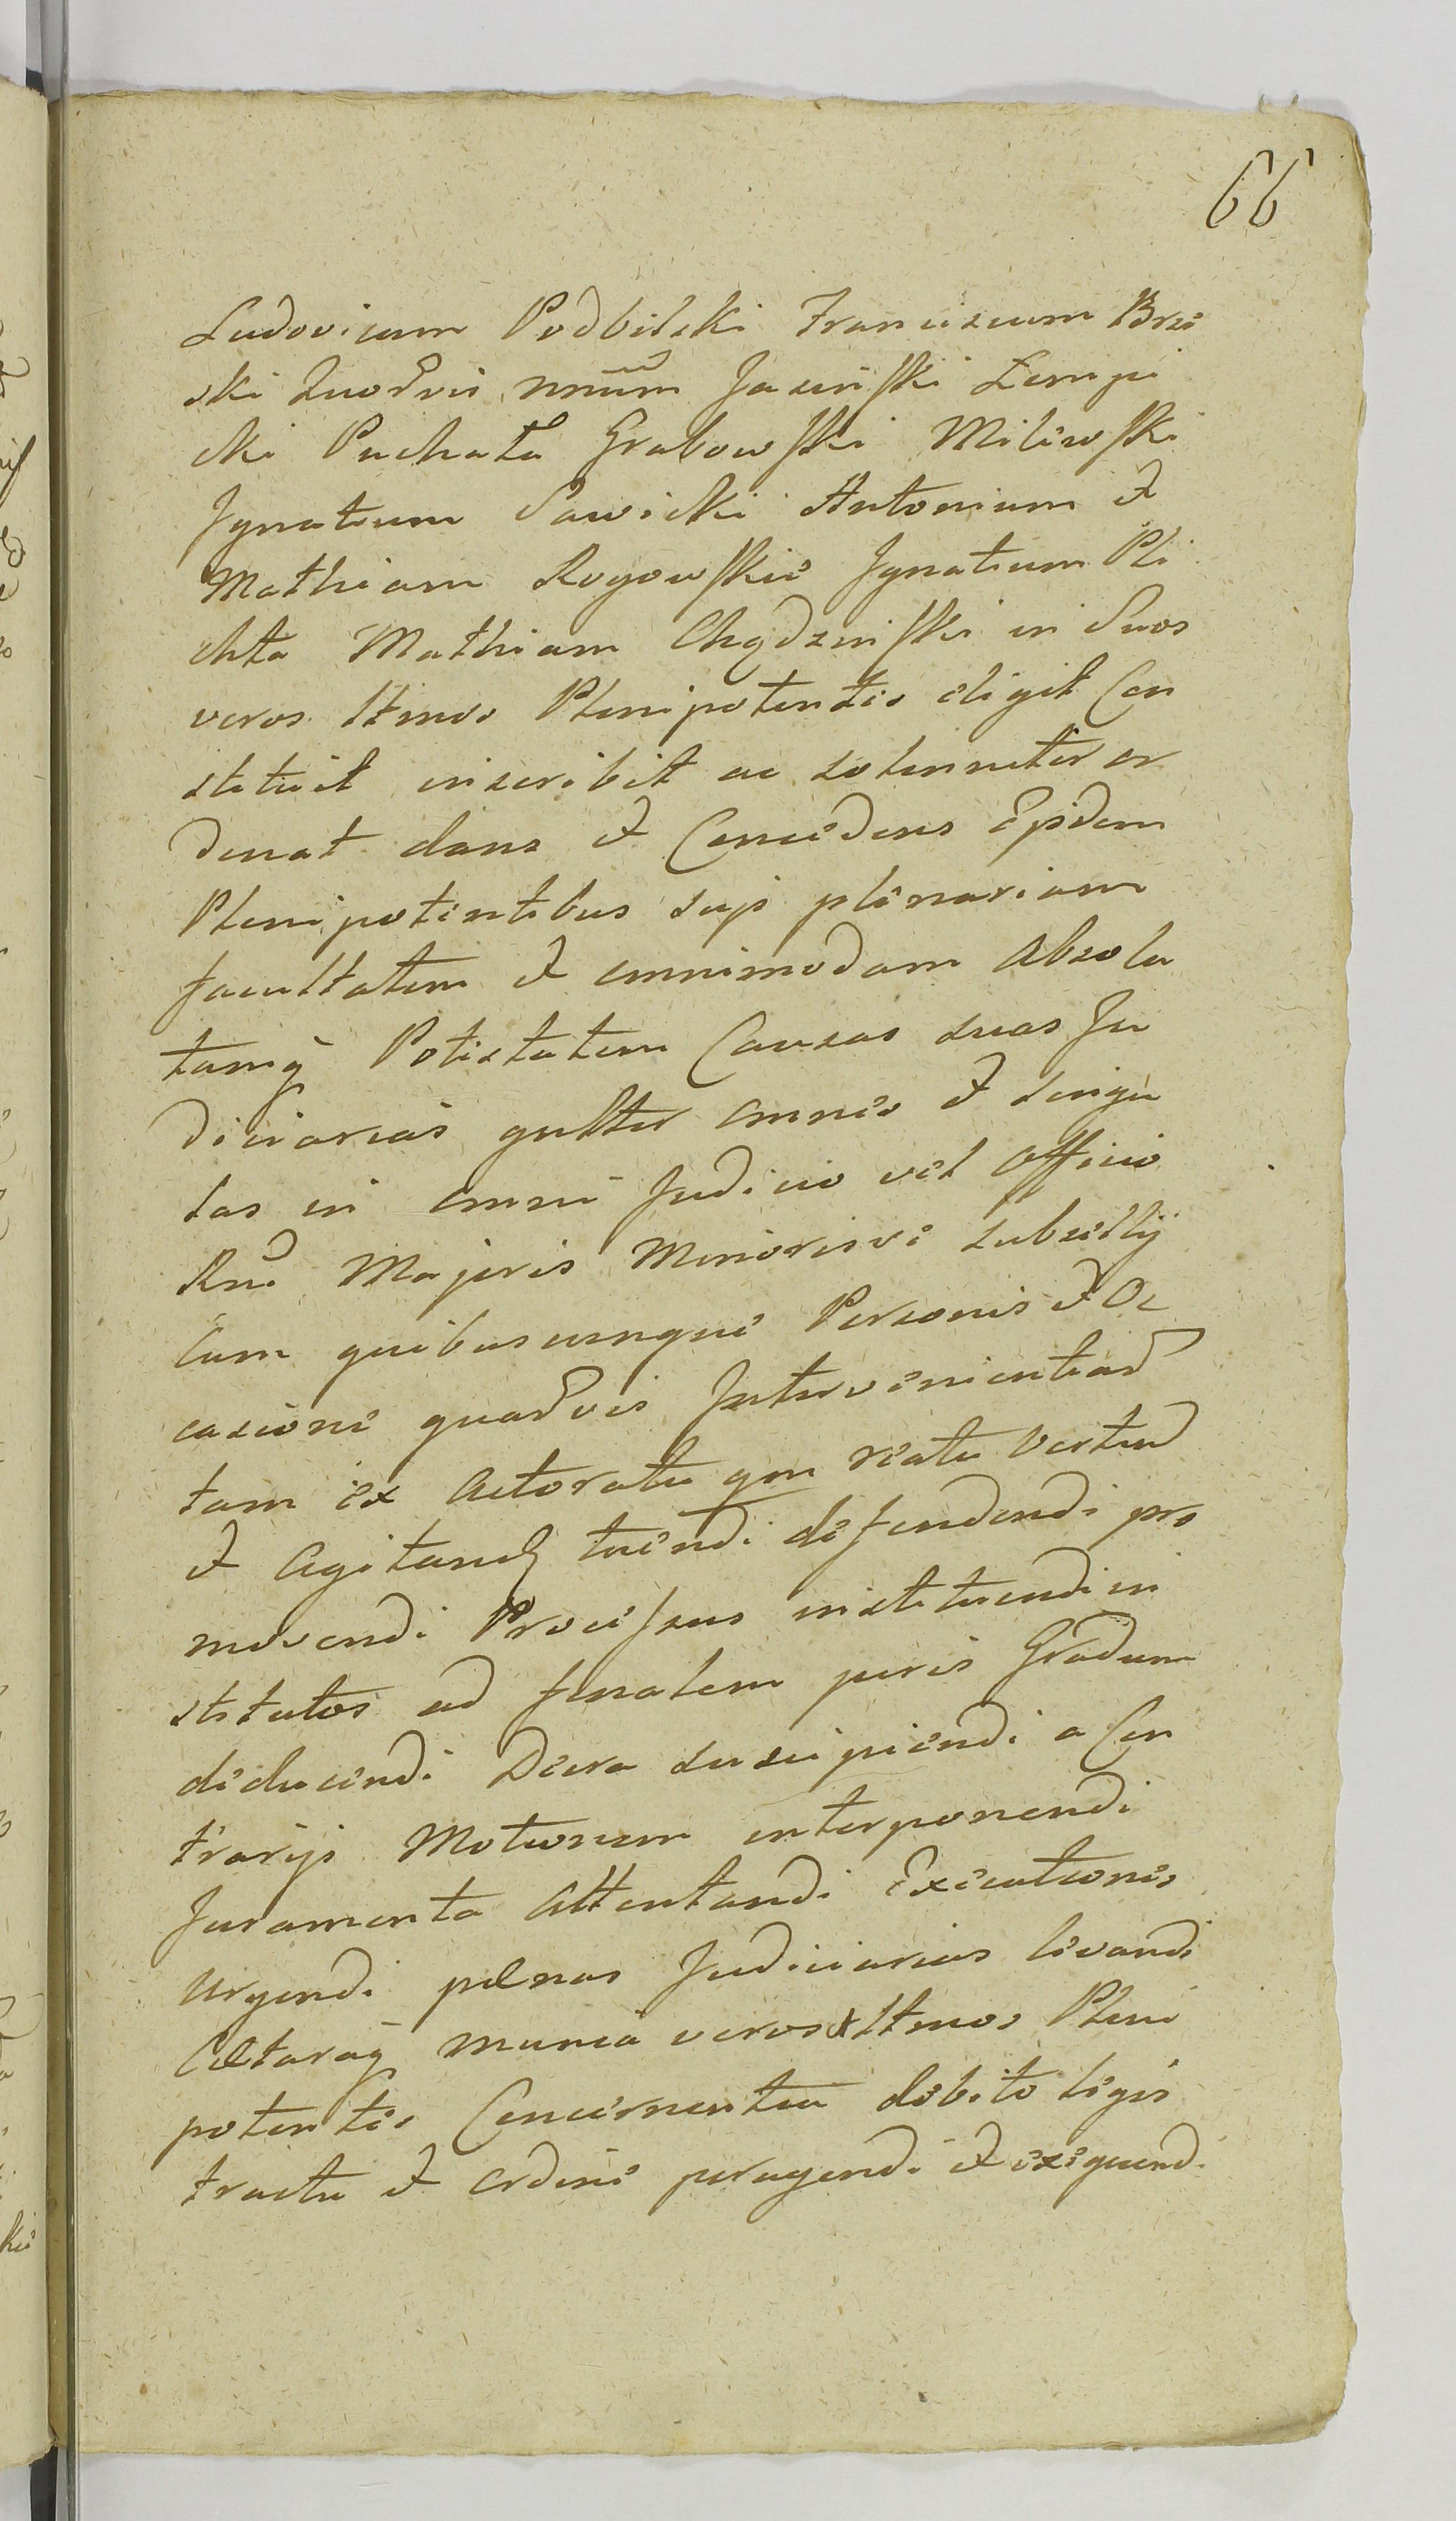 66
Ludovicum Podbilski Franciscum Brzo
ski Quorvis nnium Jasinski Lempi
cki Puchała Grabowski Milewski
Ignatium Sawicki Antonium et
Mathiam Rogowskie Ignatium Pli
chta Mathiam Chądzinski in Suos
veros ltmos Plenipotentes eligit Con
stituit inscribit ac solenniter or
dinat dans et Concedens Eisdem
Plenipotentibus suis plenariam
facultatem et omnimodam Absolu
tamq Potestatem Causas suas Ju
diciarias gnlter omnes et singu
las in omni Judicio vel Officio
Rni Majoris Minorisve subsellij
Cum quibuscunque Personis et Oc
casione quarvis Intervenientiar
tam ex Actoratu qm reatu Vertend
et Agitand tuendi defendendi pro
movendi Processus instituendi in
stitutos ad finalem juris Gradum
deducendi Decra suscipiendi a Con
trarijs Motionem interponendi
Juramenta Attentandi Executiones
Urgendi pœnas Judiciarias levandi
Cætaraq munia veros et ltmos Pleni
potentes Concernentia debito legis
tractu et ordine peragendi et exequendi